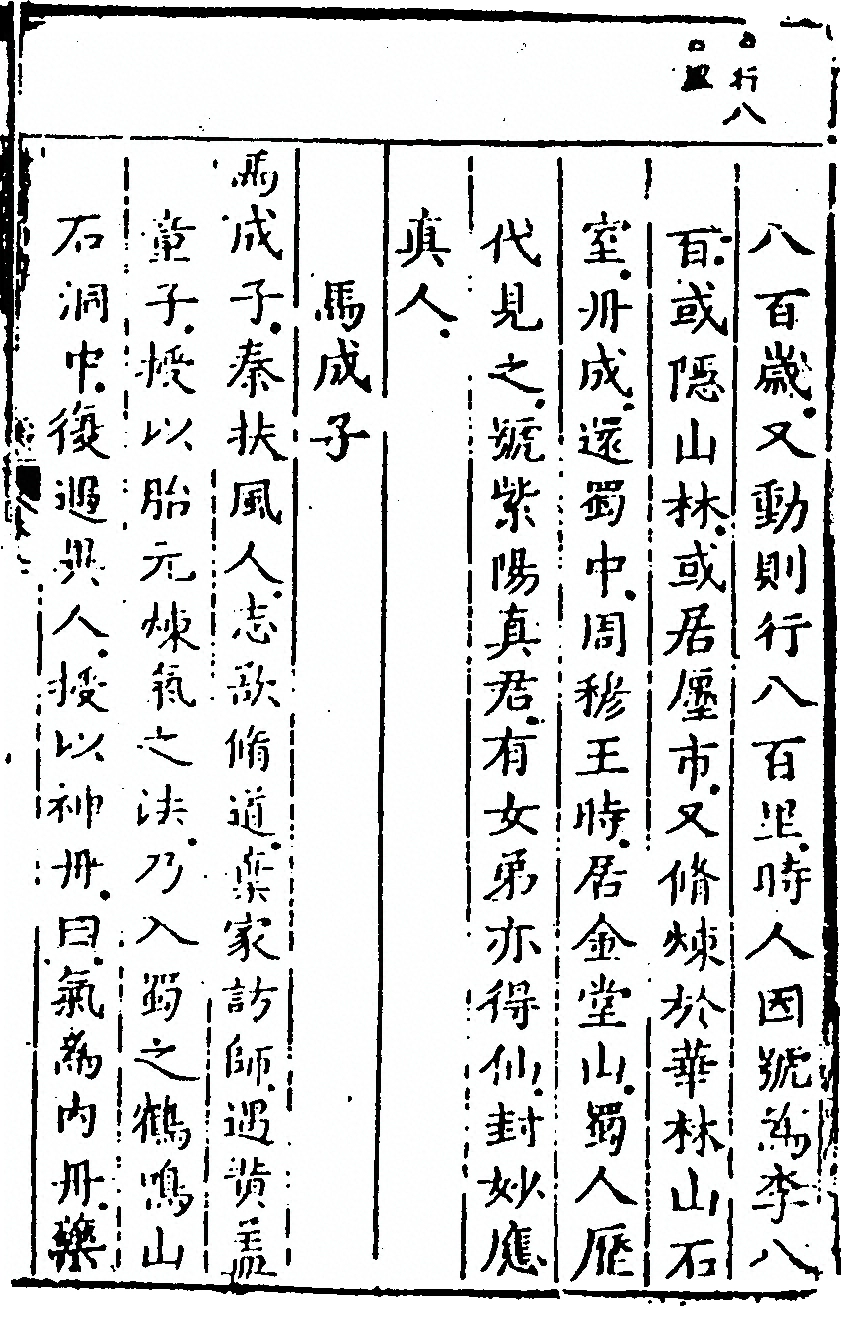 日行八
百里
八百歲。又動則行八百里。時人因號為李八
百。或隱山林。或居廛市。又脩煉於華林山石
室。丹成。還蜀中。周穆王時。居金堂山。蜀人歷
代見之。號紫陽真君。有女弟亦得仙。封妙應
真人。
馬成子
馬成子。秦扶風人。志欲脩道。棄家訪師。遇黃蓋
童子。授以胎元煉氣之法。乃入蜀之鶴鳴山
石洞中。復遇異人。授以神丹。曰。氣為內丹。藥